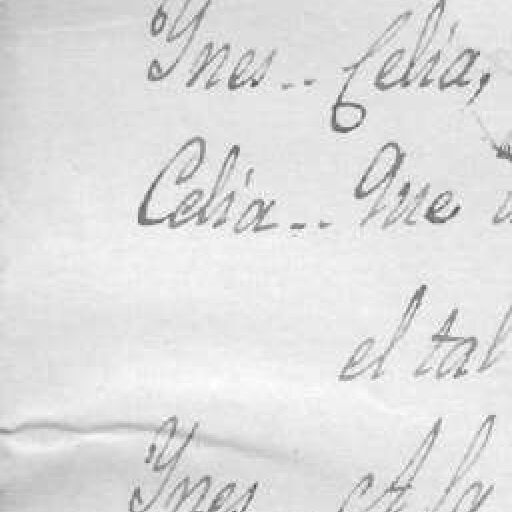 Ynes.. Celia,
Celia.. Que
el tal
Ynes.. A la